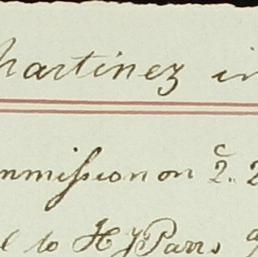 Martinez in
mmission on 2. 2
l to H J Parrs